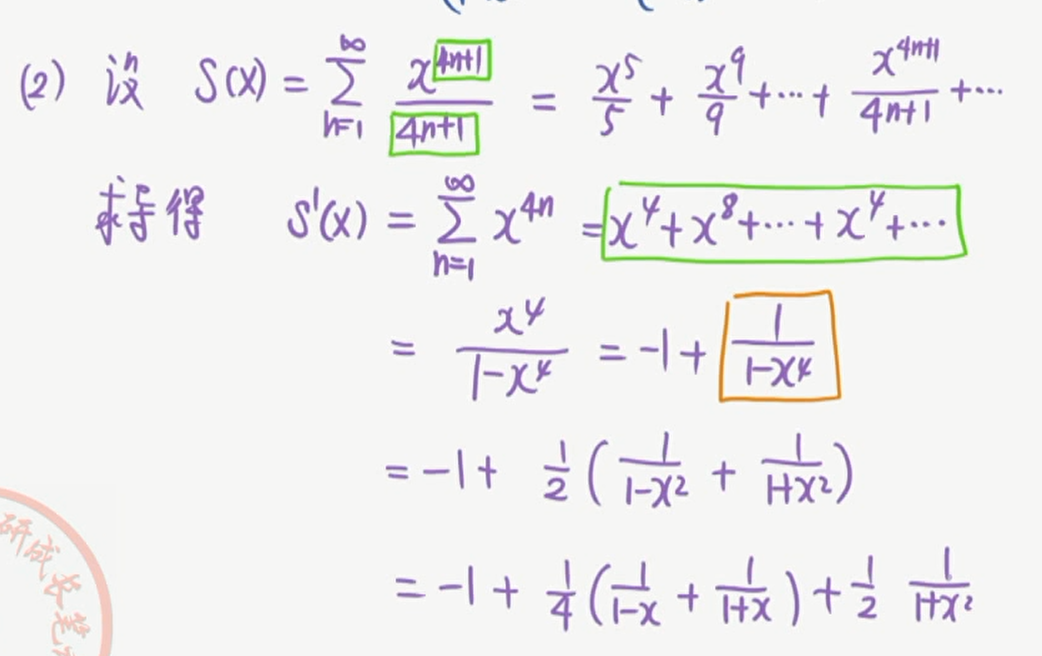 (2) 设 S(x) = ∑_{n=1}^{∞} x^{4n+1}/(4n+1) = x^5/5 + x^9/9 + ⋯ + x^{4n+1}/(4n+1) + ⋯
求导得 S'(x) = ∑_{n=1}^{∞} x^{4n} = x^4 + x^8 + ⋯ + x^4 + ⋯
= x^4/(1-x^4) = -1 + 1/(1-x^4)
= -1 + 1/2 (1/(1-x^2) + 1/(1+x^2))
= -1 + 1/4 (1/(1-x) + 1/(1+x)) + 1/2 1/(1+x^2)
研成